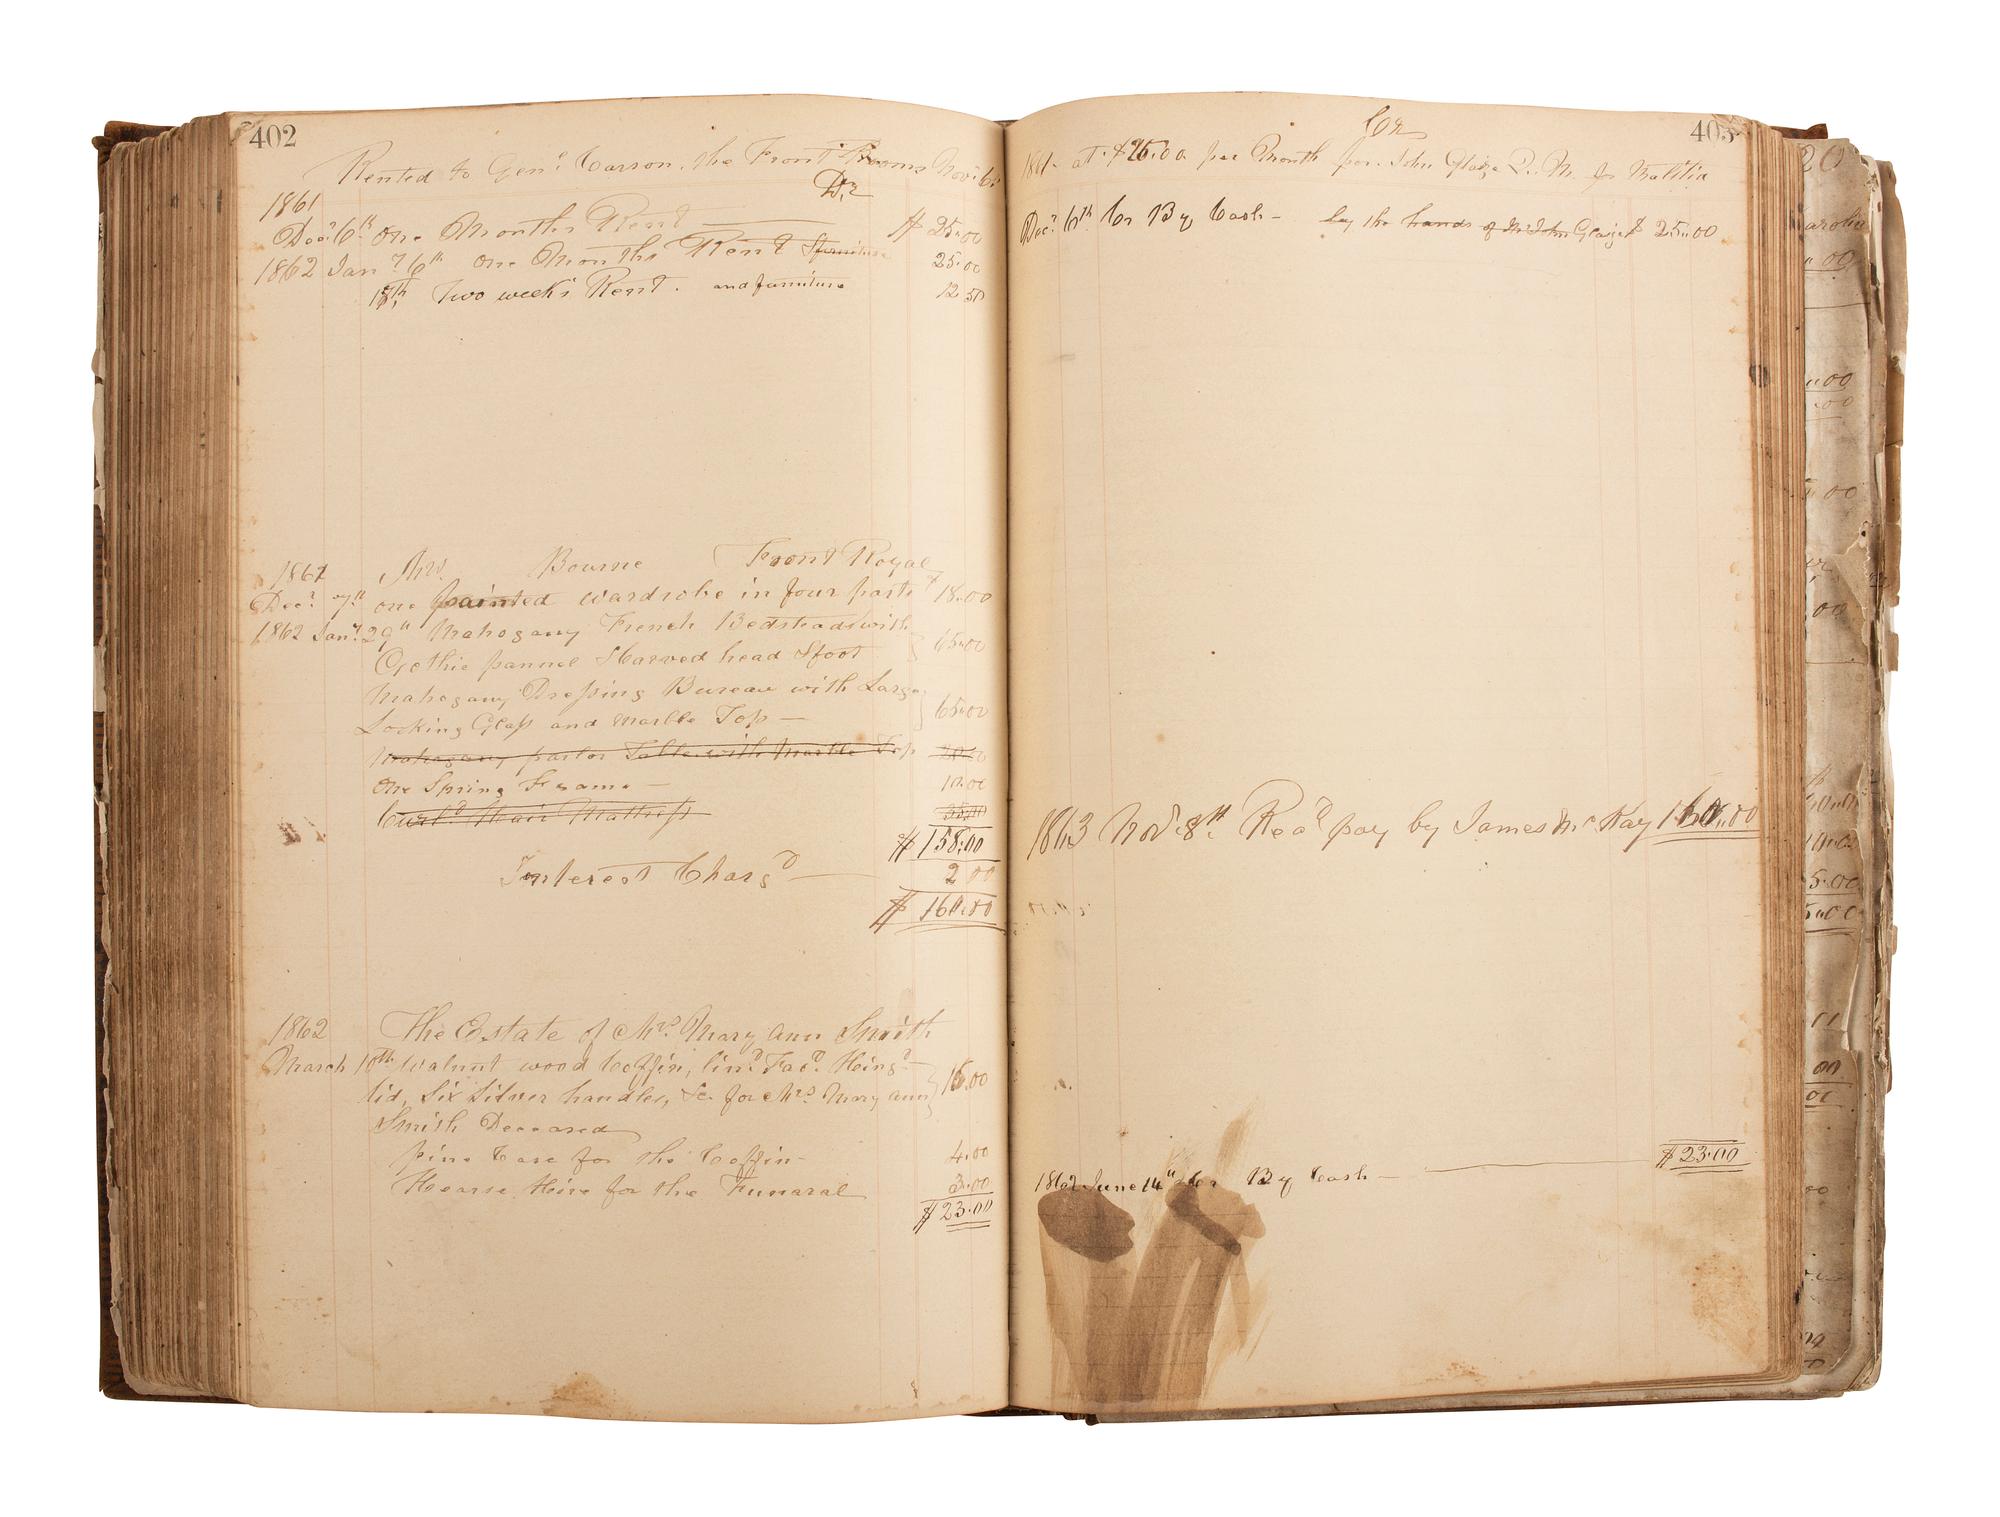 402
Rented to Genl Carson. the Front Rooms Nov. 6th
Dr
1861
Decr 6th one Months Rent $ 25.00
1862 Jany 6th one Months Rent & furniture 25.00
18th, Two week's Rent. and furniture 12 50
1861 Mrs. Bourne Front Royal
Decr 7th one painted wardrobe in four parts 18.00
1862 Jany 29th Mahogany French Bedstead with
Gothic pannel & Carved head & foot 65.00
Mahogany Dressing Bureau with Large
Looking Glass and Marble Top – 65.00
Mahogany parlor Table with Marble Top 20.00
One Spring Frame – 10.00
Curld Hair Mattress 35.00
$ 158.00
Interest Chargd 2 00
$ 160.00
1862 The Estate of Mrs Mary Ann Smith
March 10th Walnut wood Coffin, lind Facd Hingd
lid, Six Silver handles, &c for Mrs Mary Ann 16.00
Smith Deceased
pine Case for the Coffin – 4.00
Hearse Hire for the Funaral 3.00
$ 23.00
403
Cr
1861 – at $25.00 per Month per. John Glaize Q. M. for Malitia
Decr 6th Cr By Cash – by the hands of Mr John Glaize $ 25.00
1863 Nov 8th Recd pay by James McKay 160.00
$ 23.00
1862 June 14th Cr By Cash –